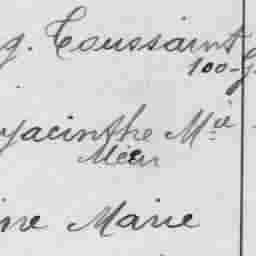 g. Toussaint
100-g.
yacinthe M.ie
Méen
ine Marie